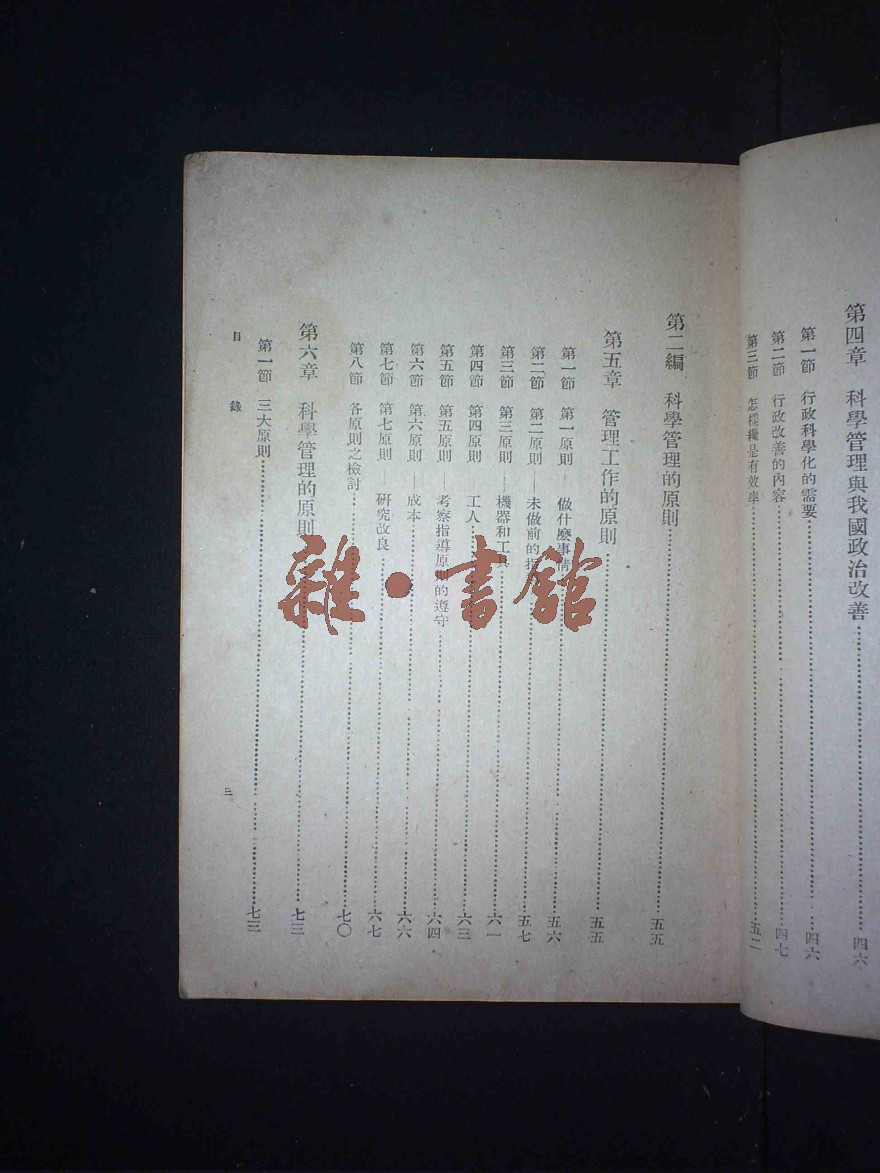 第四章　科學管理與我國政治改善……四六
第一節　行政科學化的需要……四六
第二節　行政改善的內容……四七
第三節　怎樣纔是有效率……五二
第二編　科學管理的原則……五五
第五章　管理工作的原則……五五
第一節　第一原則——做什麼事情……五六
第二節　第二原則——未做前的……五七
第三節　第三原則——機器和工具……六一
第四節　第四原則——工人……六三
第五節　第五原則——考察指導原則的遵守……六四
第六節　第六原則——成本……六六
第七節　第七原則——研究改良……六七
第八節　各原則之檢討……七〇
第六章　科學管理的原則……七三
第一節　三大原則……七三
目錄
三
雜·書館